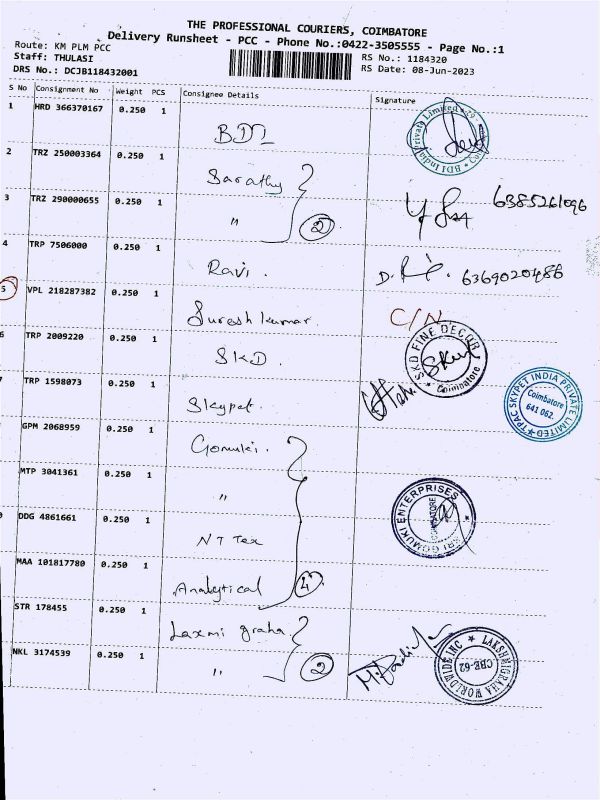 THE PROFESSIONAL COURIERS, COIMBATORE
Delivery Runsheet - PCC - Phone No.:0422-3505555 - Page No.:1
Route: KM PLM PCC
Staff: THULASI
DRS No.: DCJB118432001
RS No.: 1184320
RS Date: 08-Jun-2023
S No Consignment No Weight PCS Consignee Details Signature
1 HRD 366370167 0.250 1 BDI
BDI India Private Limited
2 TRZ 250003364 0.250 1 Sarathy
3 TRZ 290000655 0.250 1 " 2 6385261096
4 TRP 7506000 0.250 1 Ravi. 6369020486
5 VPL 218287382 0.250 1 Suresh kumar. C/N
6 TRP 2009220 0.250 1 SKD.
SKD FINE DECOR Coimbatore
TRP 1598073 0.250 1 Skypet.
TPAC SKYPET INDIA PRIVATE LIMITED
Coimbatore
641 062.
GPM 2068959 0.250 1 Gomuki.
MTP 3041361 0.250 1 "
SRI GOMUKI ENTERPRISES
COIMBATORE
DDG 4861661 0.250 1 NT Tex
MAA 101817780 0.250 1 Analytical 4
STR 178455 0.250 1 Laxmi graha
NKL 3174539 0.250 1 " 2
LAKSHMIGRAHA WORLDWIDE INC
CBE-62